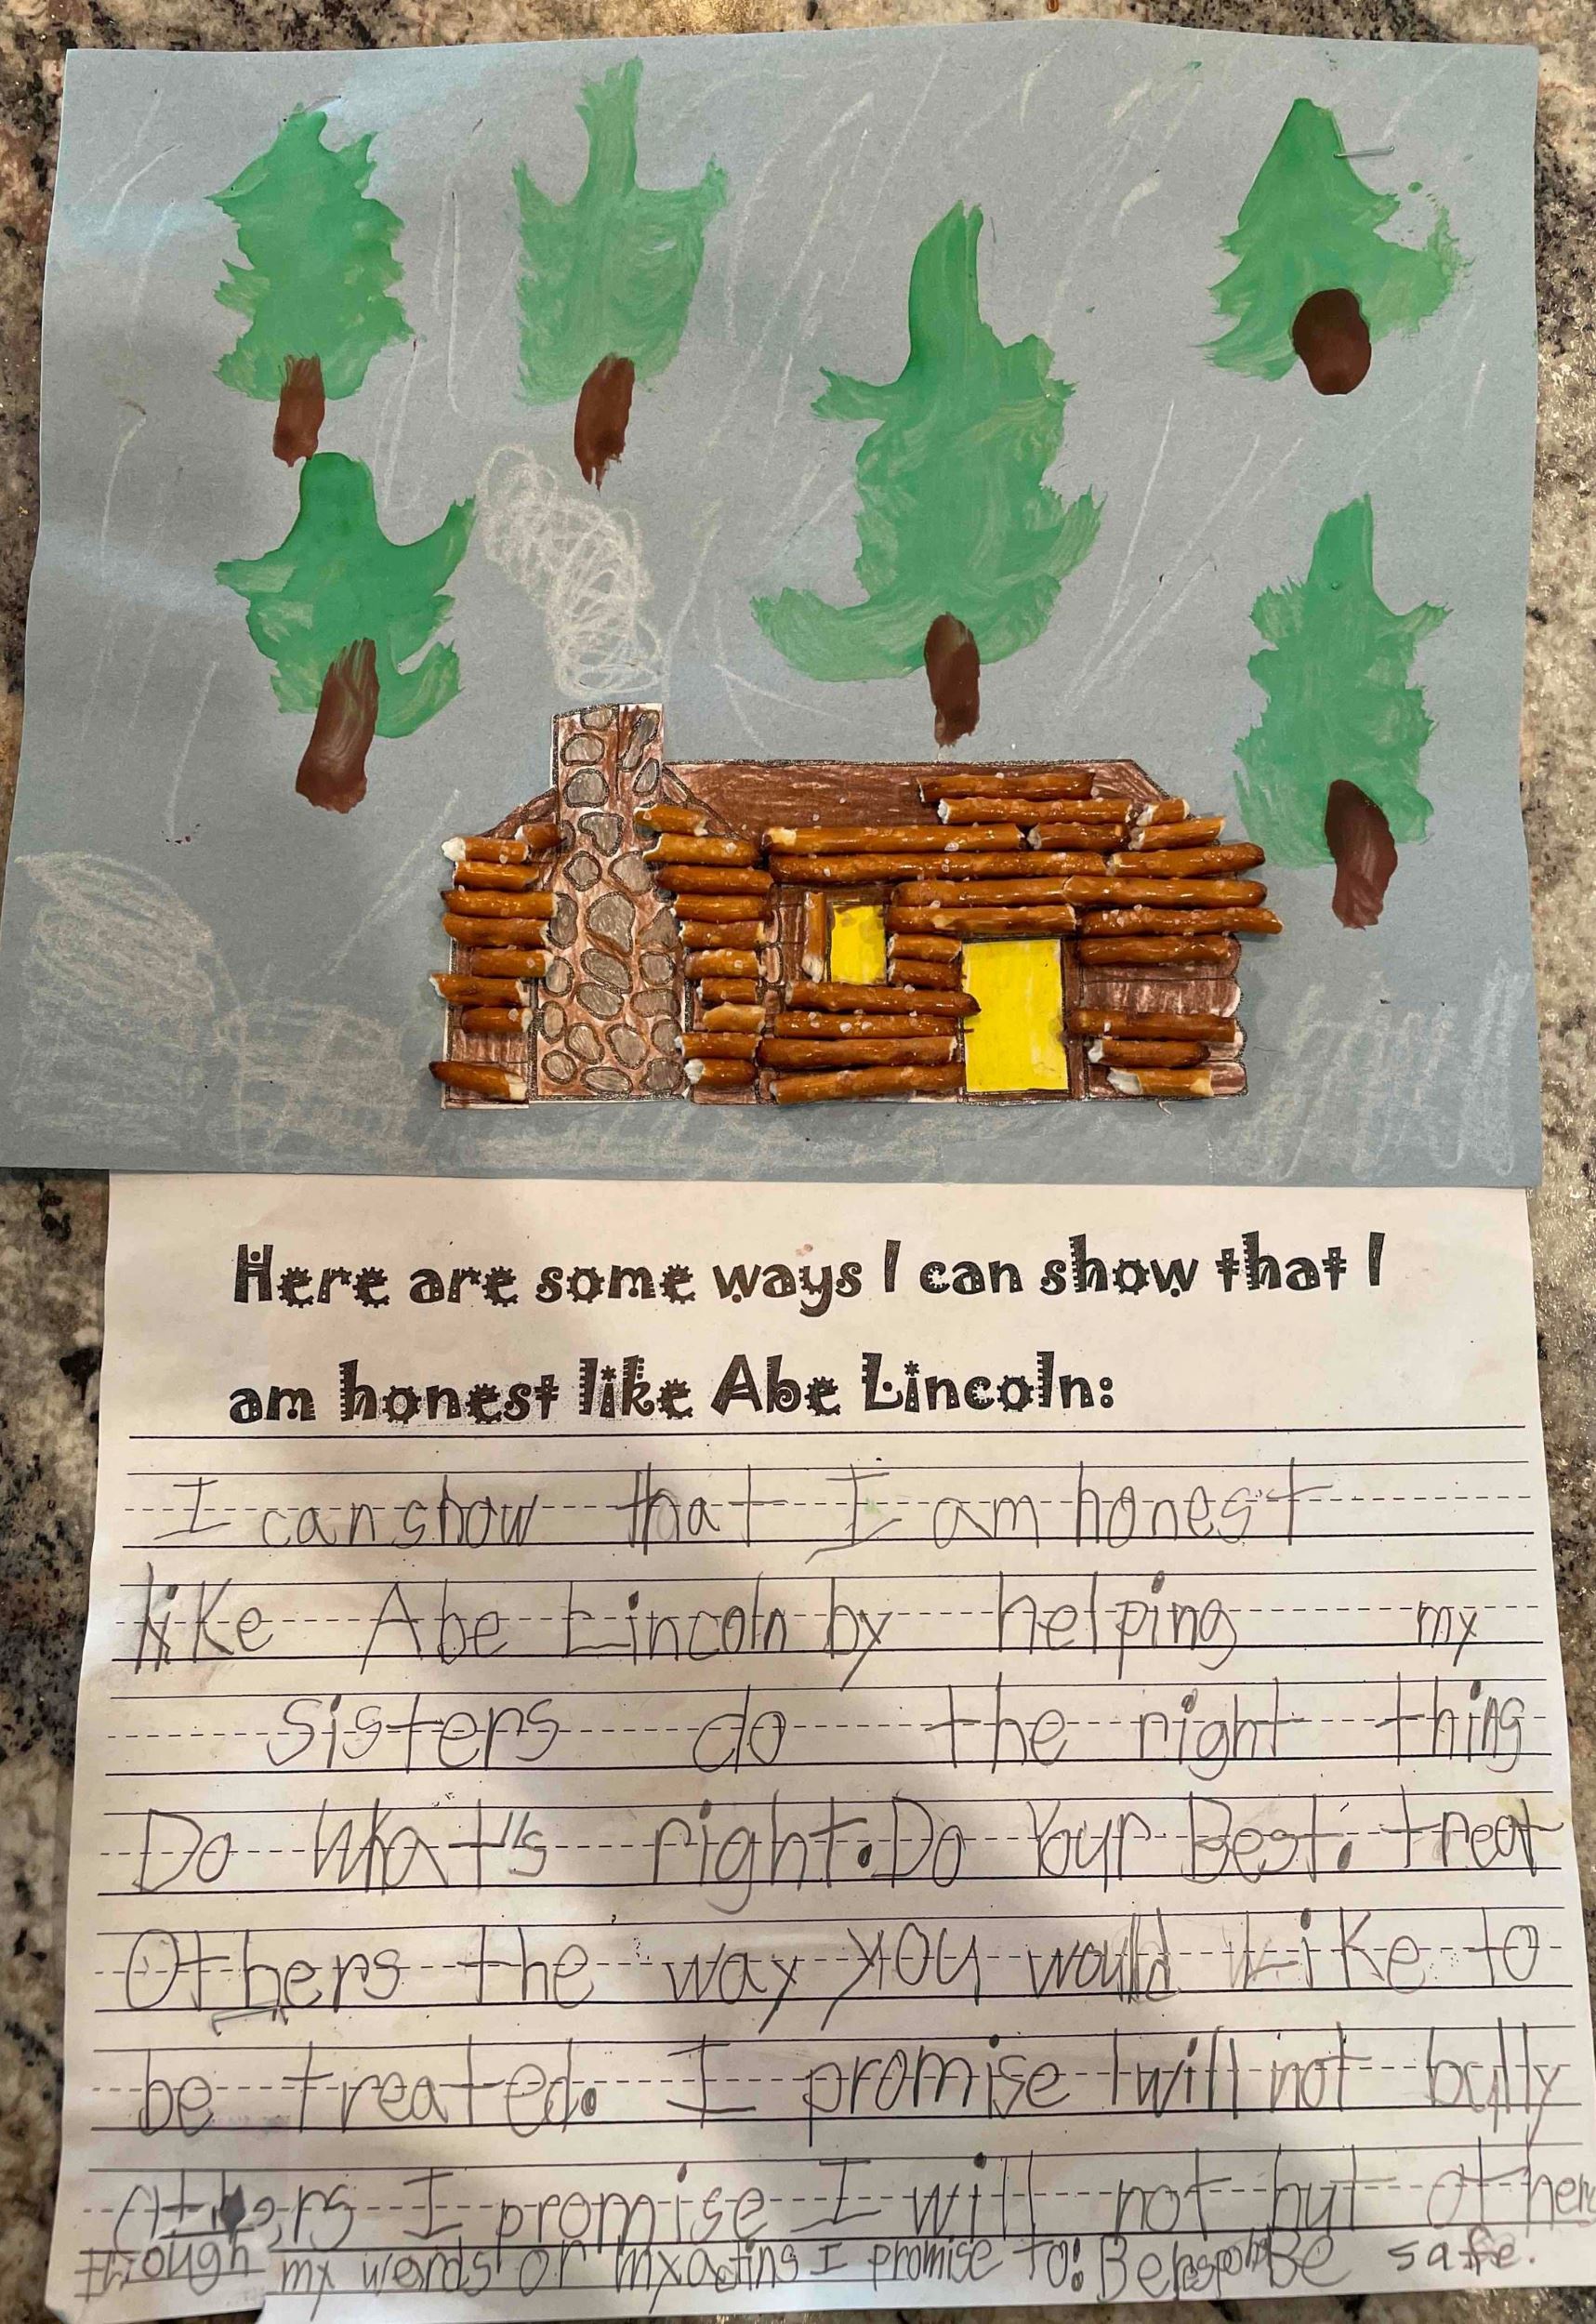 Here are some ways I can show that I
am honest like Abe Lincoln:
I can show that I am honest
like Abe Lincoln by helping my
sisters do the right thing
Do What's right. Do Your Best. treat
Others the way you would Like to
be treated. I promise I will not bully
Others I promise I will not hut others
through my words or my actins I promise to: Be Be safe.